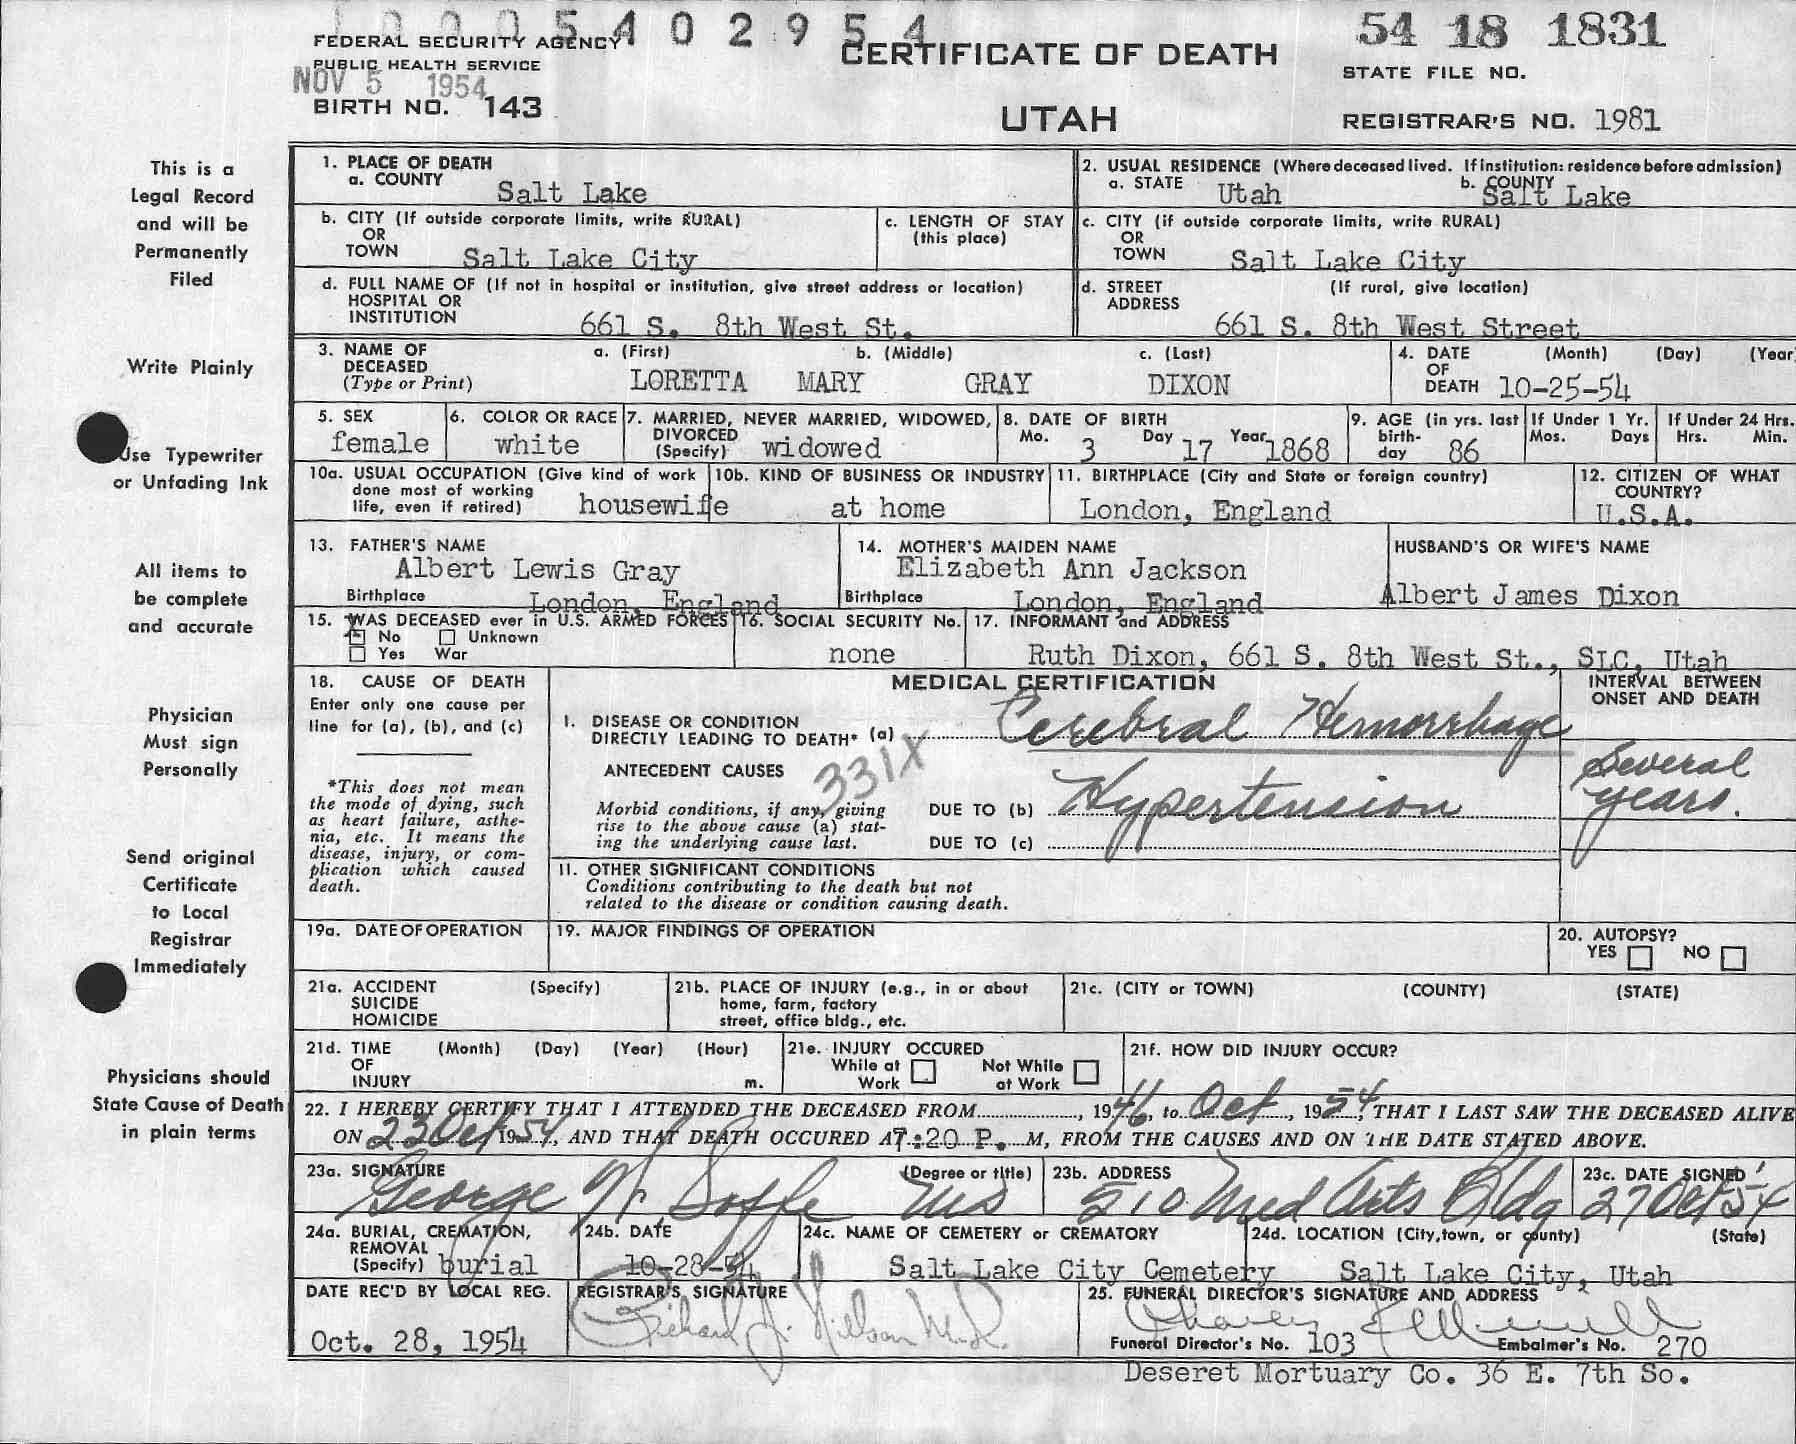 1 0 0 0 5 4 0 2 9 5 4
FEDERAL SECURITY AGENCY
PUBLIC HEALTH SERVICE
NOV 5 1954
BIRTH NO. 143
CERTIFICATE OF DEATH
UTAH
54 18 1831
STATE FILE NO.
REGISTRAR'S NO. 1981
This is a
Legal Record
and will be
Permanently
Filed
Write Plainly
Use Typewriter
or Unfading Ink
All items to
be complete
and accurate
Physician
Must sign
Personally
Send original
Certificate
to Local
Registrar
Immediately
Physicians should
State Cause of Death
in plain terms
1. PLACE OF DEATH
a. COUNTY Salt Lake
2. USUAL RESIDENCE (Where deceased lived. If institution: residence before admission)
a. STATE Utah b. COUNTY Salt Lake
b. CITY (If outside corporate limits, write RURAL)
OR
TOWN Salt Lake City
c. LENGTH OF STAY
(this place)
c. CITY (if outside corporate limits, write RURAL)
OR
TOWN Salt Lake City
d. FULL NAME OF (If not in hospital or institution, give street address or location)
HOSPITAL OR
INSTITUTION 661 S. 8th West St.
d. STREET (If rural, give location)
ADDRESS 661 S. 8th West Street
3. NAME OF a. (First) b. (Middle) c. (Last)
DECEASED
(Type or Print) LORETTA MARY GRAY DIXON
4. DATE (Month) (Day) (Year
OF
DEATH 10-25-54
5. SEX
female
6. COLOR OR RACE
white
7. MARRIED, NEVER MARRIED, WIDOWED,
DIVORCED
(Specify) widowed
8. DATE OF BIRTH
Mo. 3 Day 17 Year 1868
9. AGE (in yrs. last
birth-
day 86
If Under 1 Yr.
Mos. Days
If Under 24 Hrs.
Hrs. Min.
10a. USUAL OCCUPATION (Give kind of work
done most of working
life, even if retired) housewife
10b. KIND OF BUSINESS OR INDUSTRY
at home
11. BIRTHPLACE (City and State or foreign country)
London, England
12. CITIZEN OF WHAT
COUNTRY?
U.S.A.
13. FATHER'S NAME
Albert Lewis Gray
Birthplace London, England
14. MOTHER'S MAIDEN NAME
Elizabeth Ann Jackson
Birthplace London, England
HUSBAND'S OR WIFE'S NAME
Albert James Dixon
15. WAS DECEASED ever in U.S. ARMED FORCES
X No Unknown
Yes War
16. SOCIAL SECURITY No.
none
17. INFORMANT and ADDRESS
Ruth Dixon, 661 S. 8th West St., SLC, Utah
18. CAUSE OF DEATH
Enter only one cause per
line for (a), (b), and (c)
*This does not mean
the mode of dying, such
as heart failure, asthe-
nia, etc. It means the
disease, injury, or com-
plication which caused
death.
MEDICAL CERTIFICATION
INTERVAL BETWEEN
ONSET AND DEATH
I. DISEASE OR CONDITION
DIRECTLY LEADING TO DEATH* (a) Cerebral Hemorrhage
331X
ANTECEDENT CAUSES
Morbid conditions, if any, giving
rise to the above cause (a) stat-
ing the underlying cause last.
DUE TO (b) Hypertension
Several
years.
DUE TO (c)
11. OTHER SIGNIFICANT CONDITIONS
Conditions contributing to the death but not
related to the disease or condition causing death.
19a. DATE OF OPERATION
19. MAJOR FINDINGS OF OPERATION
20. AUTOPSY?
YES NO
21a. ACCIDENT (Specify)
SUICIDE
HOMICIDE
21b. PLACE OF INJURY (e.g., in or about
home, farm, factory
street, office bldg., etc.
21c. (CITY or TOWN) (COUNTY) (STATE)
21d. TIME (Month) (Day) (Year) (Hour)
OF
INJURY m.
21e. INJURY OCCURED
While at Work
Not While at Work
21f. HOW DID INJURY OCCUR?
22. I HEREBY CERTIFY THAT I ATTENDED THE DECEASED FROM , 1946, to Oct, 1954, THAT I LAST SAW THE DECEASED ALIVE
ON 23 Oct 1954, AND THAT DEATH OCCURED AT 7:20 P. M, FROM THE CAUSES AND ON THE DATE STATED ABOVE.
23a. SIGNATURE (Degree or title)
George W. Soffe MD
23b. ADDRESS
510 Med Arts Bldg
23c. DATE SIGNED
27 Oct 54
24a. BURIAL, CREMATION,
REMOVAL
(Specify) burial
24b. DATE
10-28-54
24c. NAME OF CEMETERY or CREMATORY
Salt Lake City Cemetery
24d. LOCATION (City, town, or county) (State)
Salt Lake City, Utah
DATE REC'D BY LOCAL REG.
Oct. 28, 1954
REGISTRAR'S SIGNATURE
Richard J. Nillson M.D.
25. FUNERAL DIRECTOR'S SIGNATURE AND ADDRESS
Funeral Director's No. 103 Embalmer's No. 270
Deseret Mortuary Co. 36 E. 7th So.